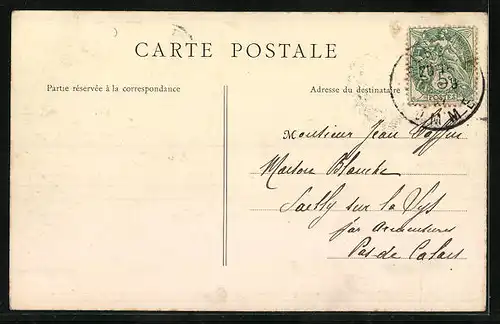 CARTE POSTALE
Partie réservée à la correspondance
Adresse du destinataire
Monsieur Jean
Maison Blanche
Sailly sur la Lys
par
Pas de Calais